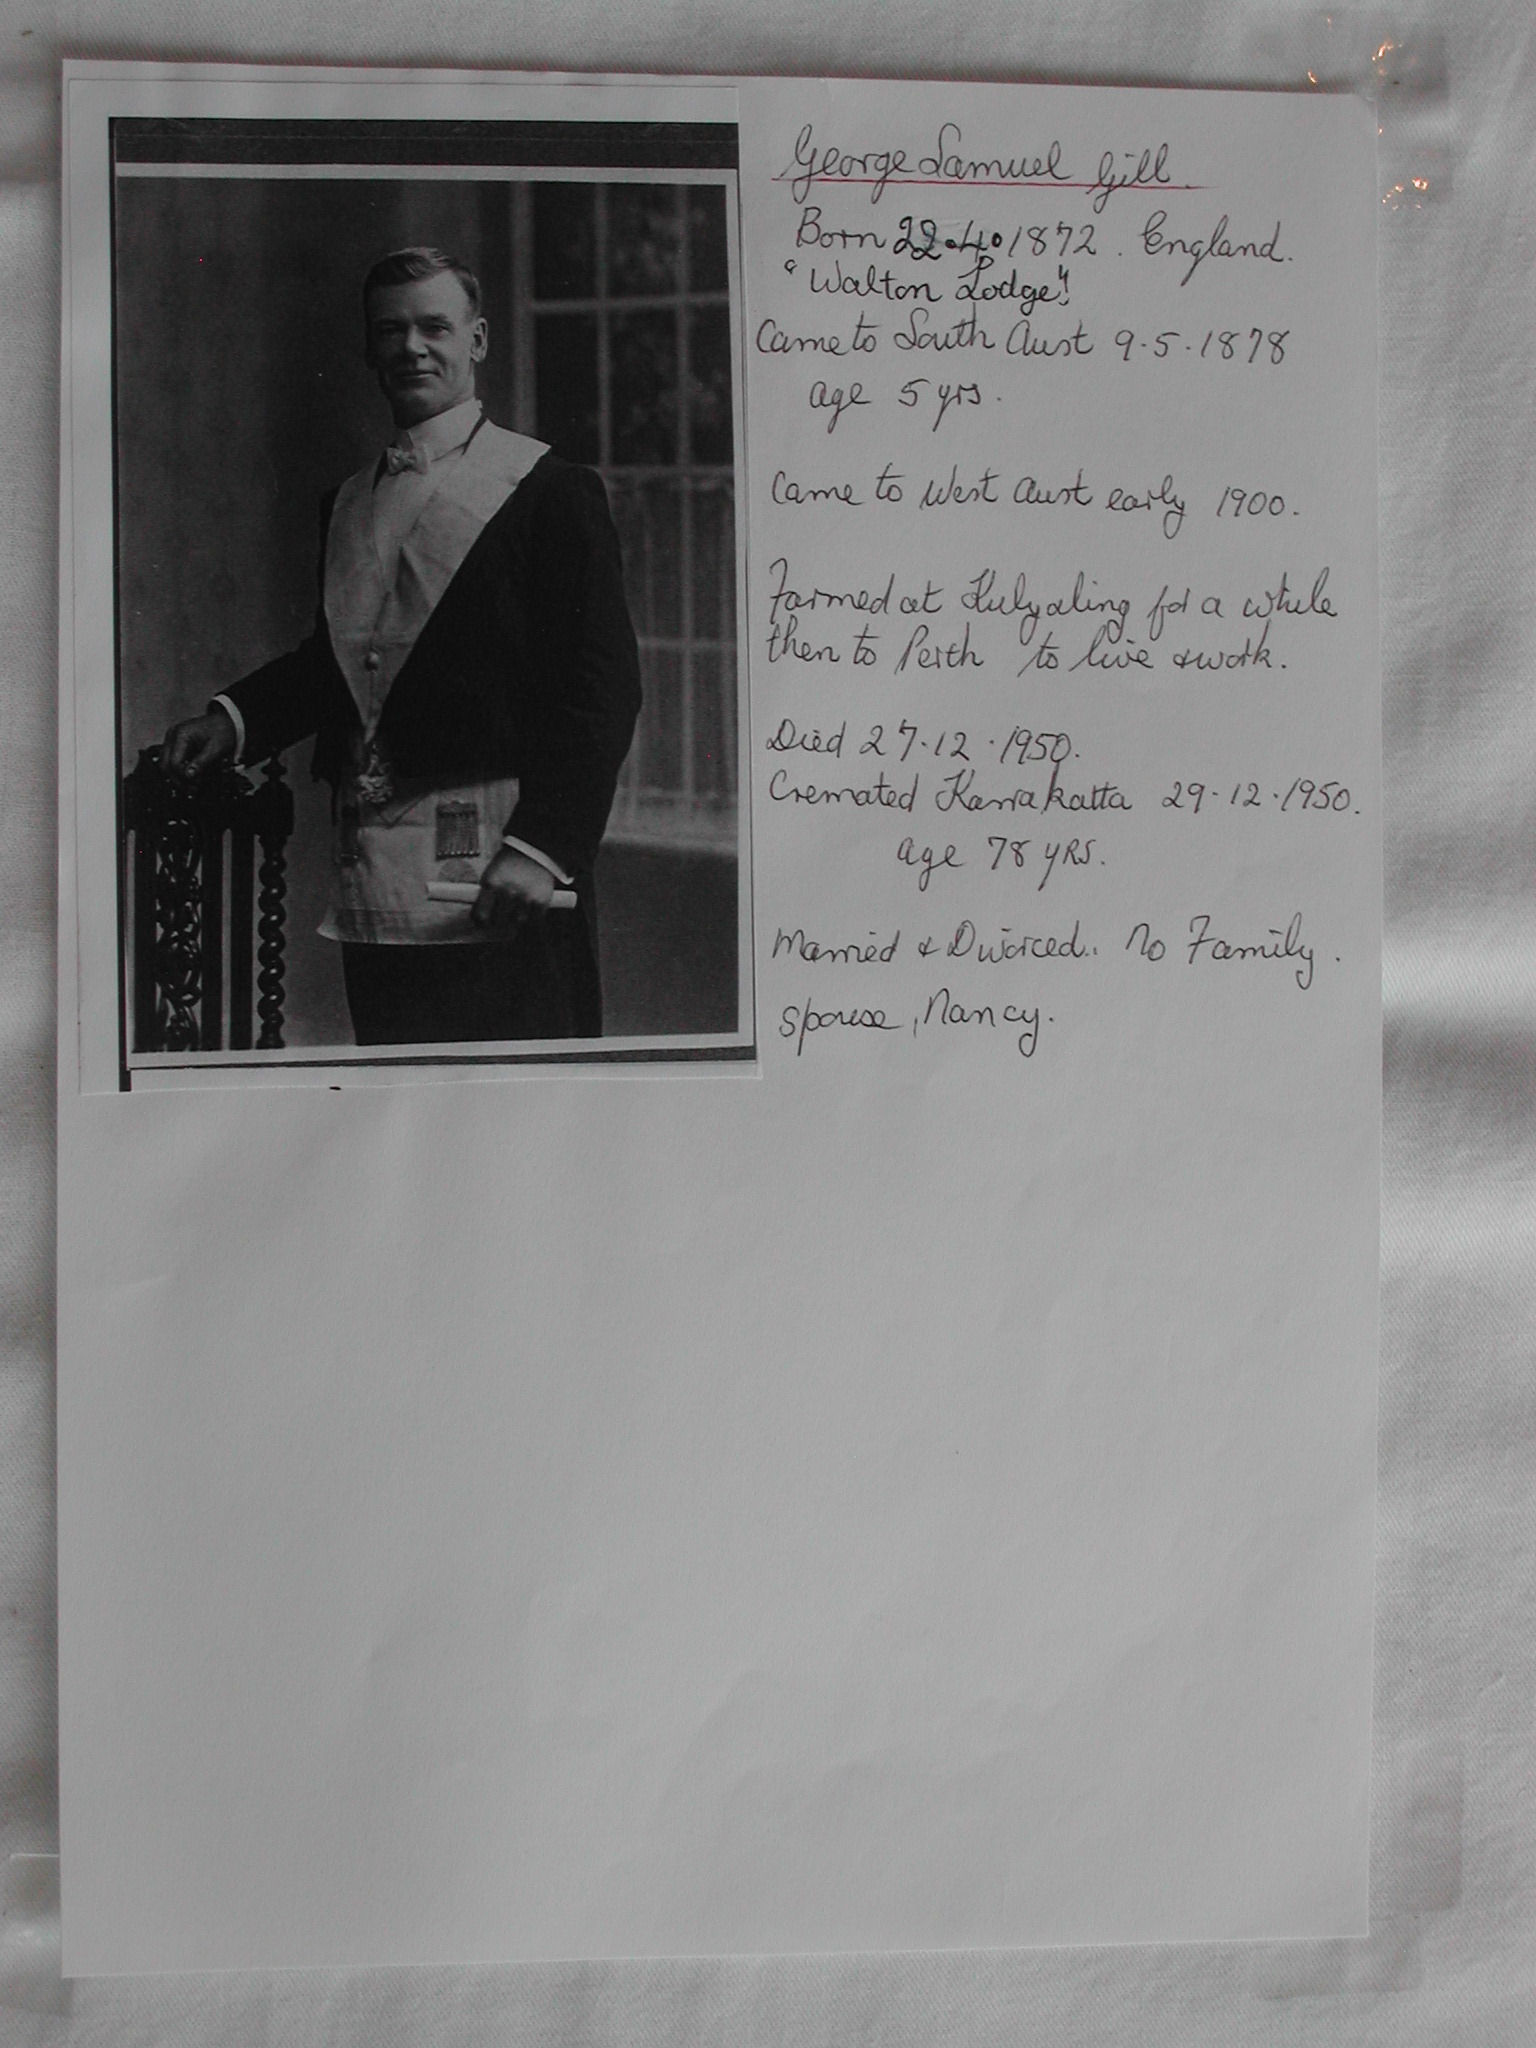 George Samuel Gill.
Born 22.4.1872. England.
"Walton Lodge".
Came to South Aust 9.5.1878
age 5 yrs.
Came to West Aust early 1900.
Farmed at Kulyaling for a while
then to Perth to live & work.
Died 27.12.1950.
Cremated Karrakatta 29.12.1950.
age 78 YRS.
Married & Divorced.. No Family.
Spouse, Nancy.